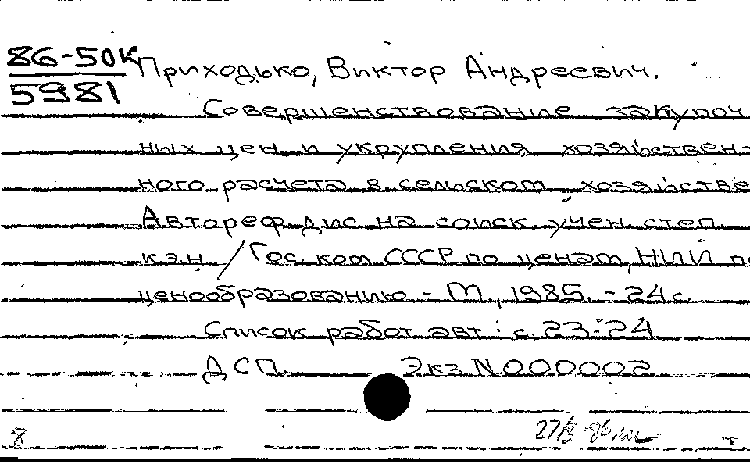 86-50К
5981
Приходько, Виктор Андреевич.
Совершенствование закупоч
ных цен и укрупления хозяйствен-
ного расчета в сельском хозяйстве
Автореф. дис. на соиск. учен. степ.
к.э.н. / Гос. ком. СССР по ценам, НИИ по
ценообразованию - М., 1985. - 24 с
Список работ авт.: с. 23-24
ДСП. Экз N000002
8